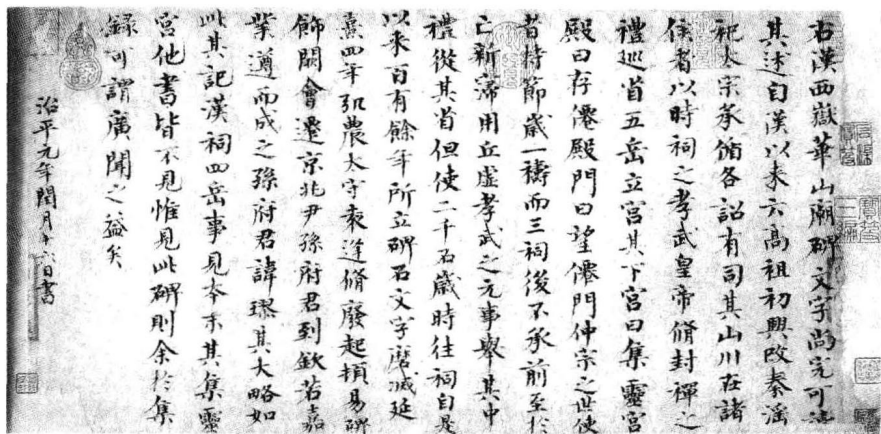 右漢西嶽華山廟碑文字尚完可讀
其述自漢以來云高祖初興改秦滛
祀太宗承循各詔有司其山川在諸
侯者以時祠之孝武皇帝脩封禪之
禮巡省五岳立宮其下宮曰集靈宮
殿曰存僊殿門曰望僊門仲宗之世使
者持節歲一禱而三祠後不承前至於
亡新寖用丘虛孝武之元事舉其中
禮從其省但使二千石歲時往祠自是
以來百有餘年所立碑石文字磨滅延
熹四年弘農太守袁逢脩廢起頓易碑
飾闕會遷京兆尹孫府君到欽若嘉
業遵而成之孫府君諱璆其大略如
此其記漢祠四岳事見本末其集靈
宮他書皆不見惟見此碑則余於集
録可謂廣聞之益矣
治平元年閏月十六日書